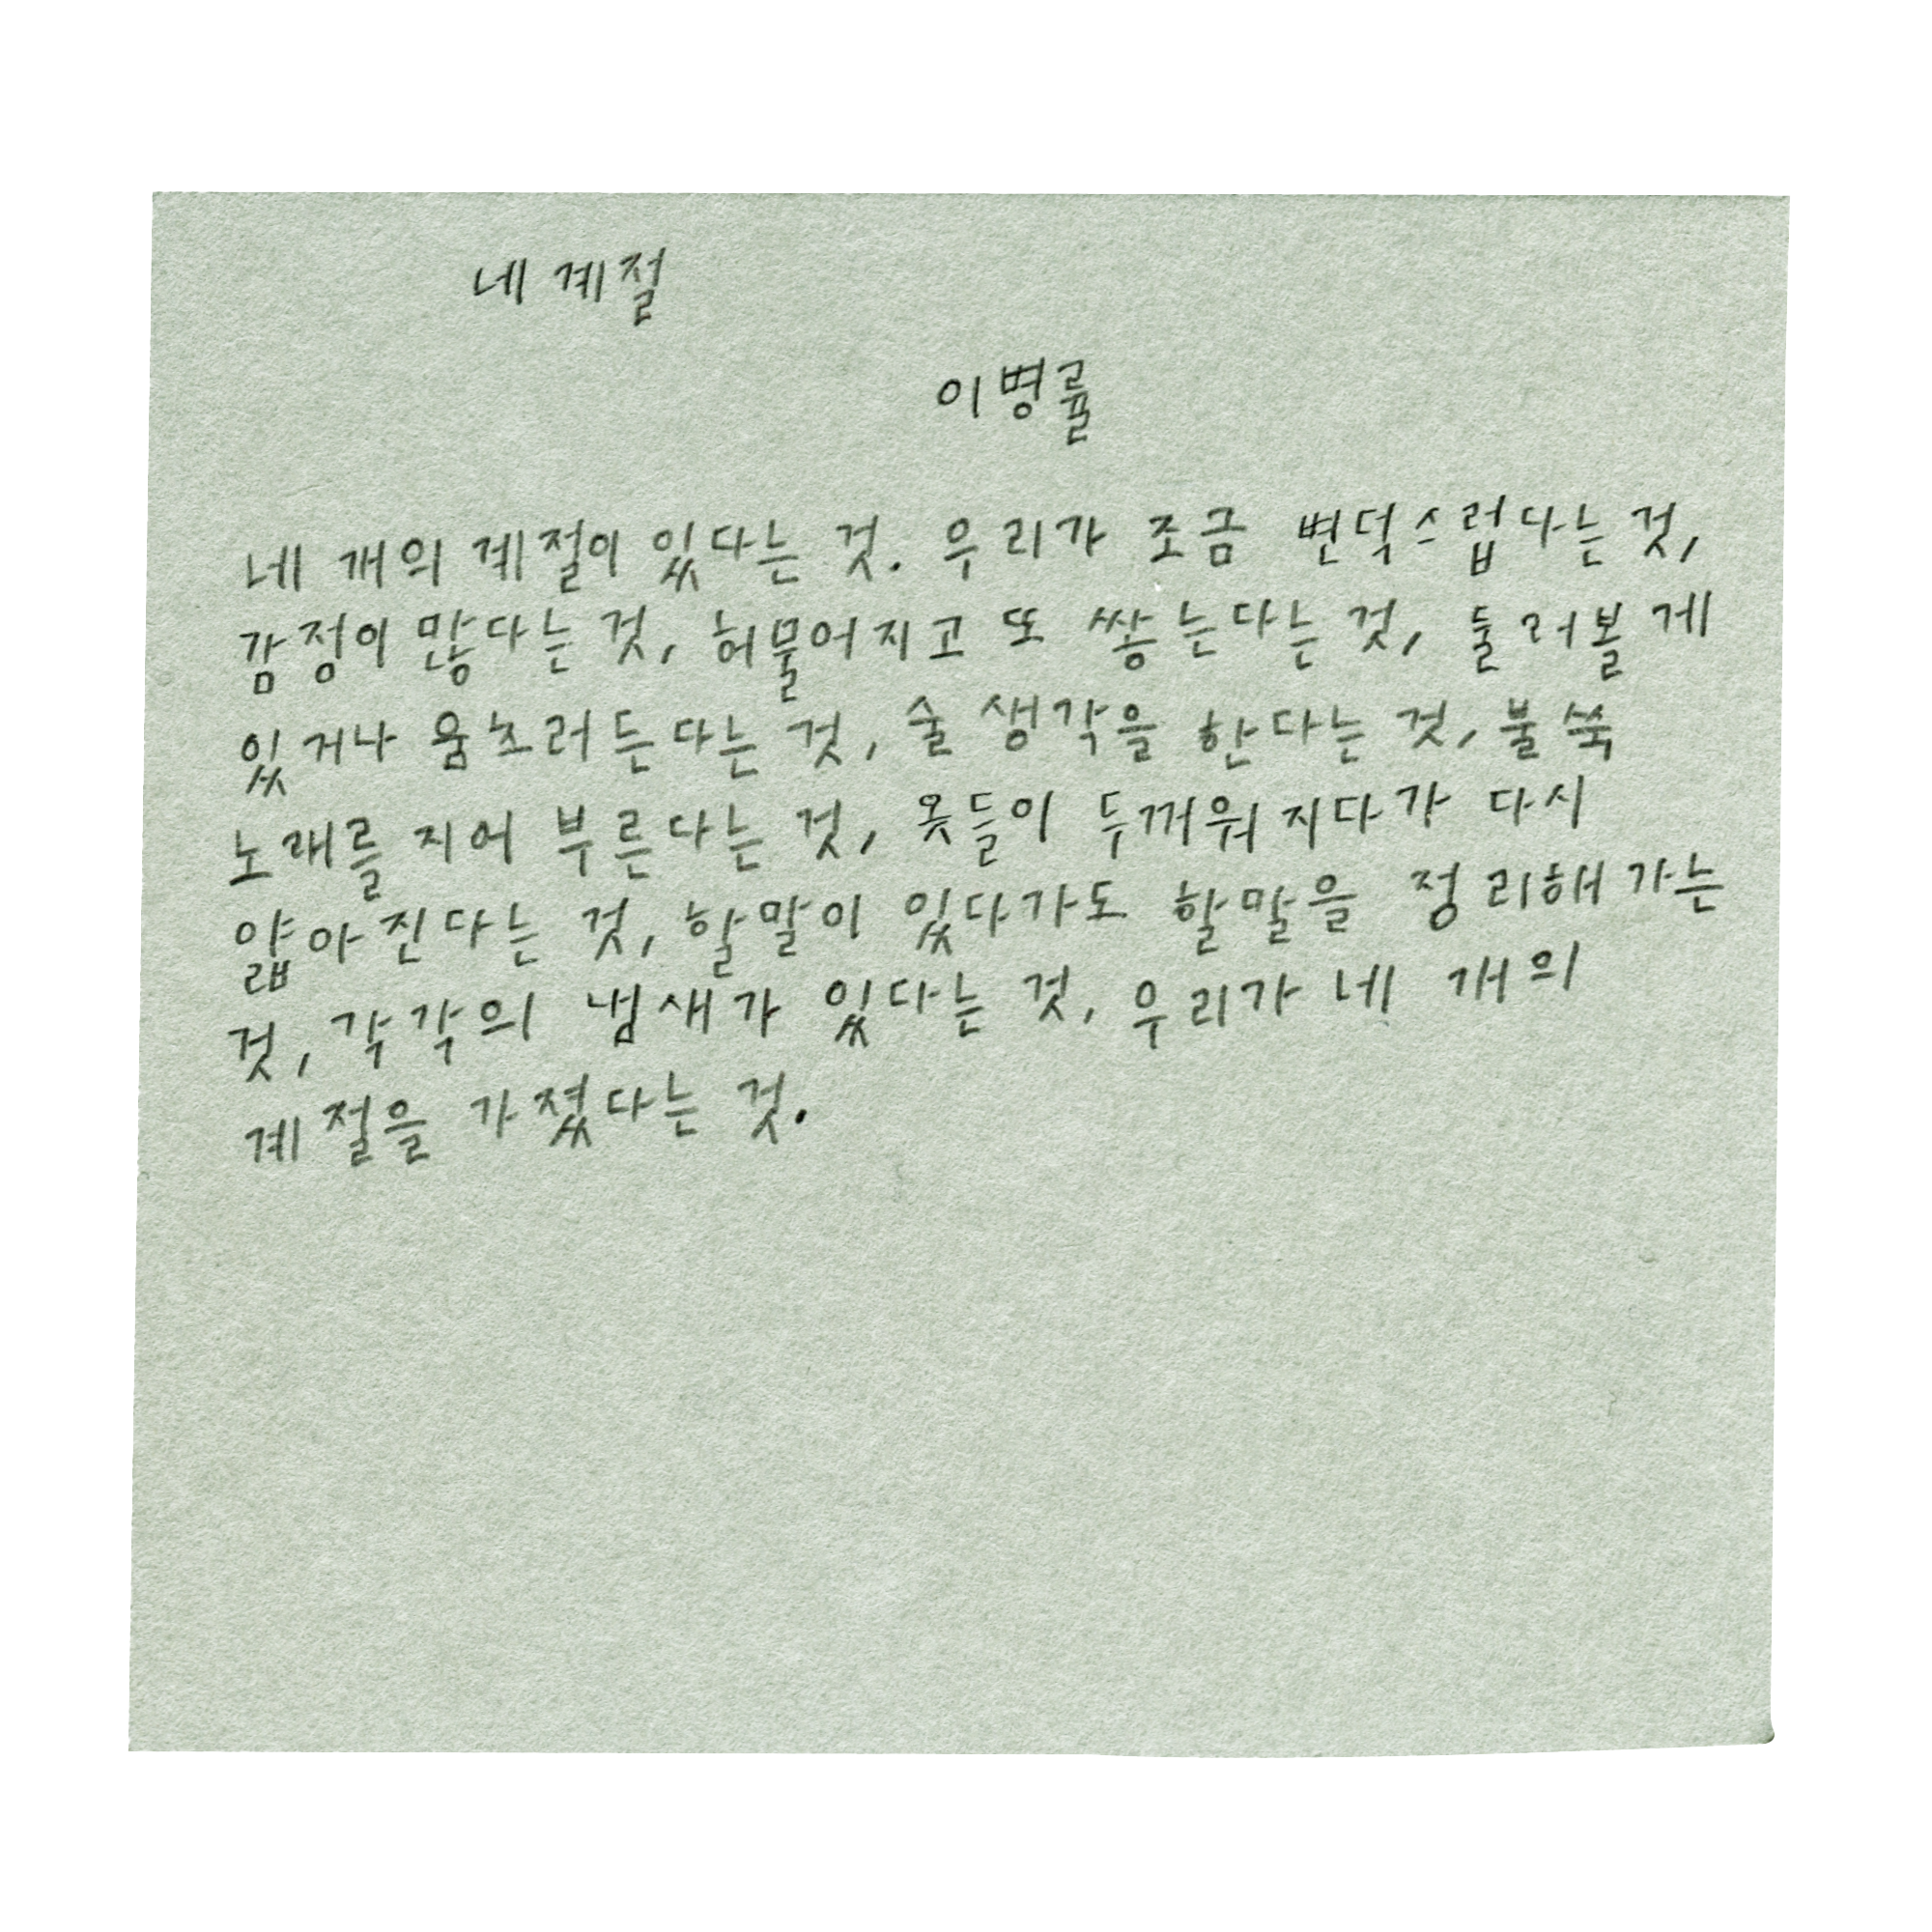 네 계절
이병률
네 개의 계절이 있다는 것. 우리가 조금 변덕스럽다는 것,
감정이 많다는 것, 허물어지고 또 쌓는다는 것, 둘러볼 게
있거나 움츠러든다는 것, 술 생각을 한다는 것, 불쑥
노래를 지어 부른다는 것, 옷들이 두꺼워지다가 다시
얇아진다는 것, 할말이 있다가도 할말을 정리해가는
것, 각각의 냄새가 있다는 것, 우리가 네 개의
계절을 가졌다는 것.